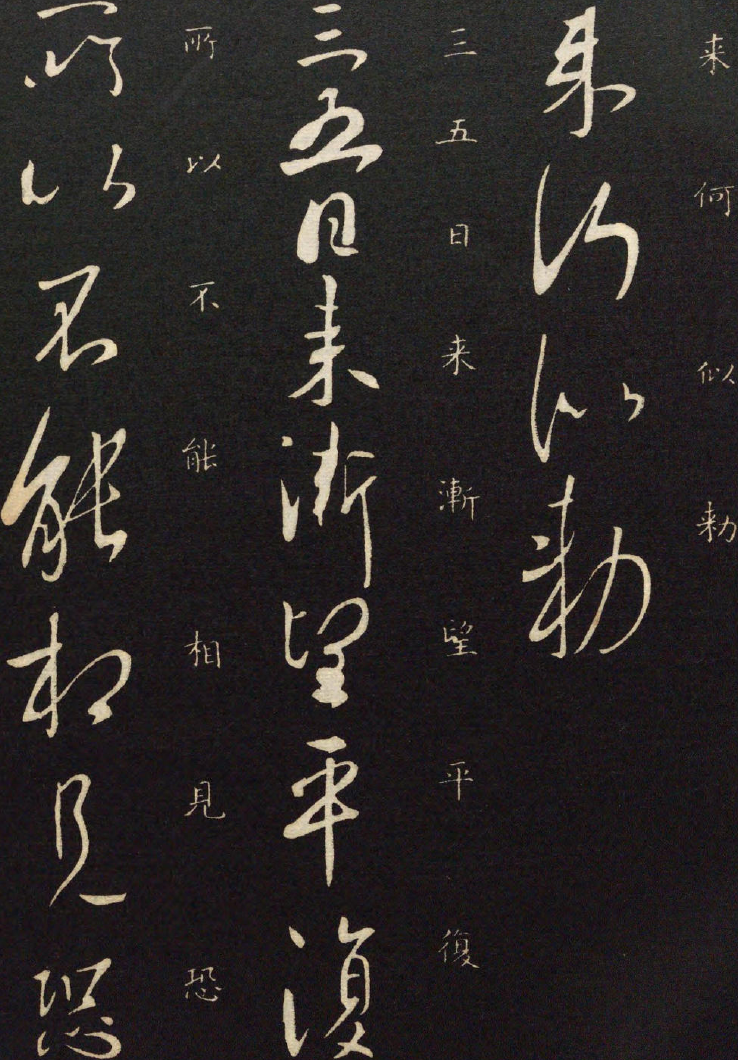 来何似勅
来何似勅
三五日来漸望平復
三五日来漸望平復
所以不能相見恐
所以不能相見恐